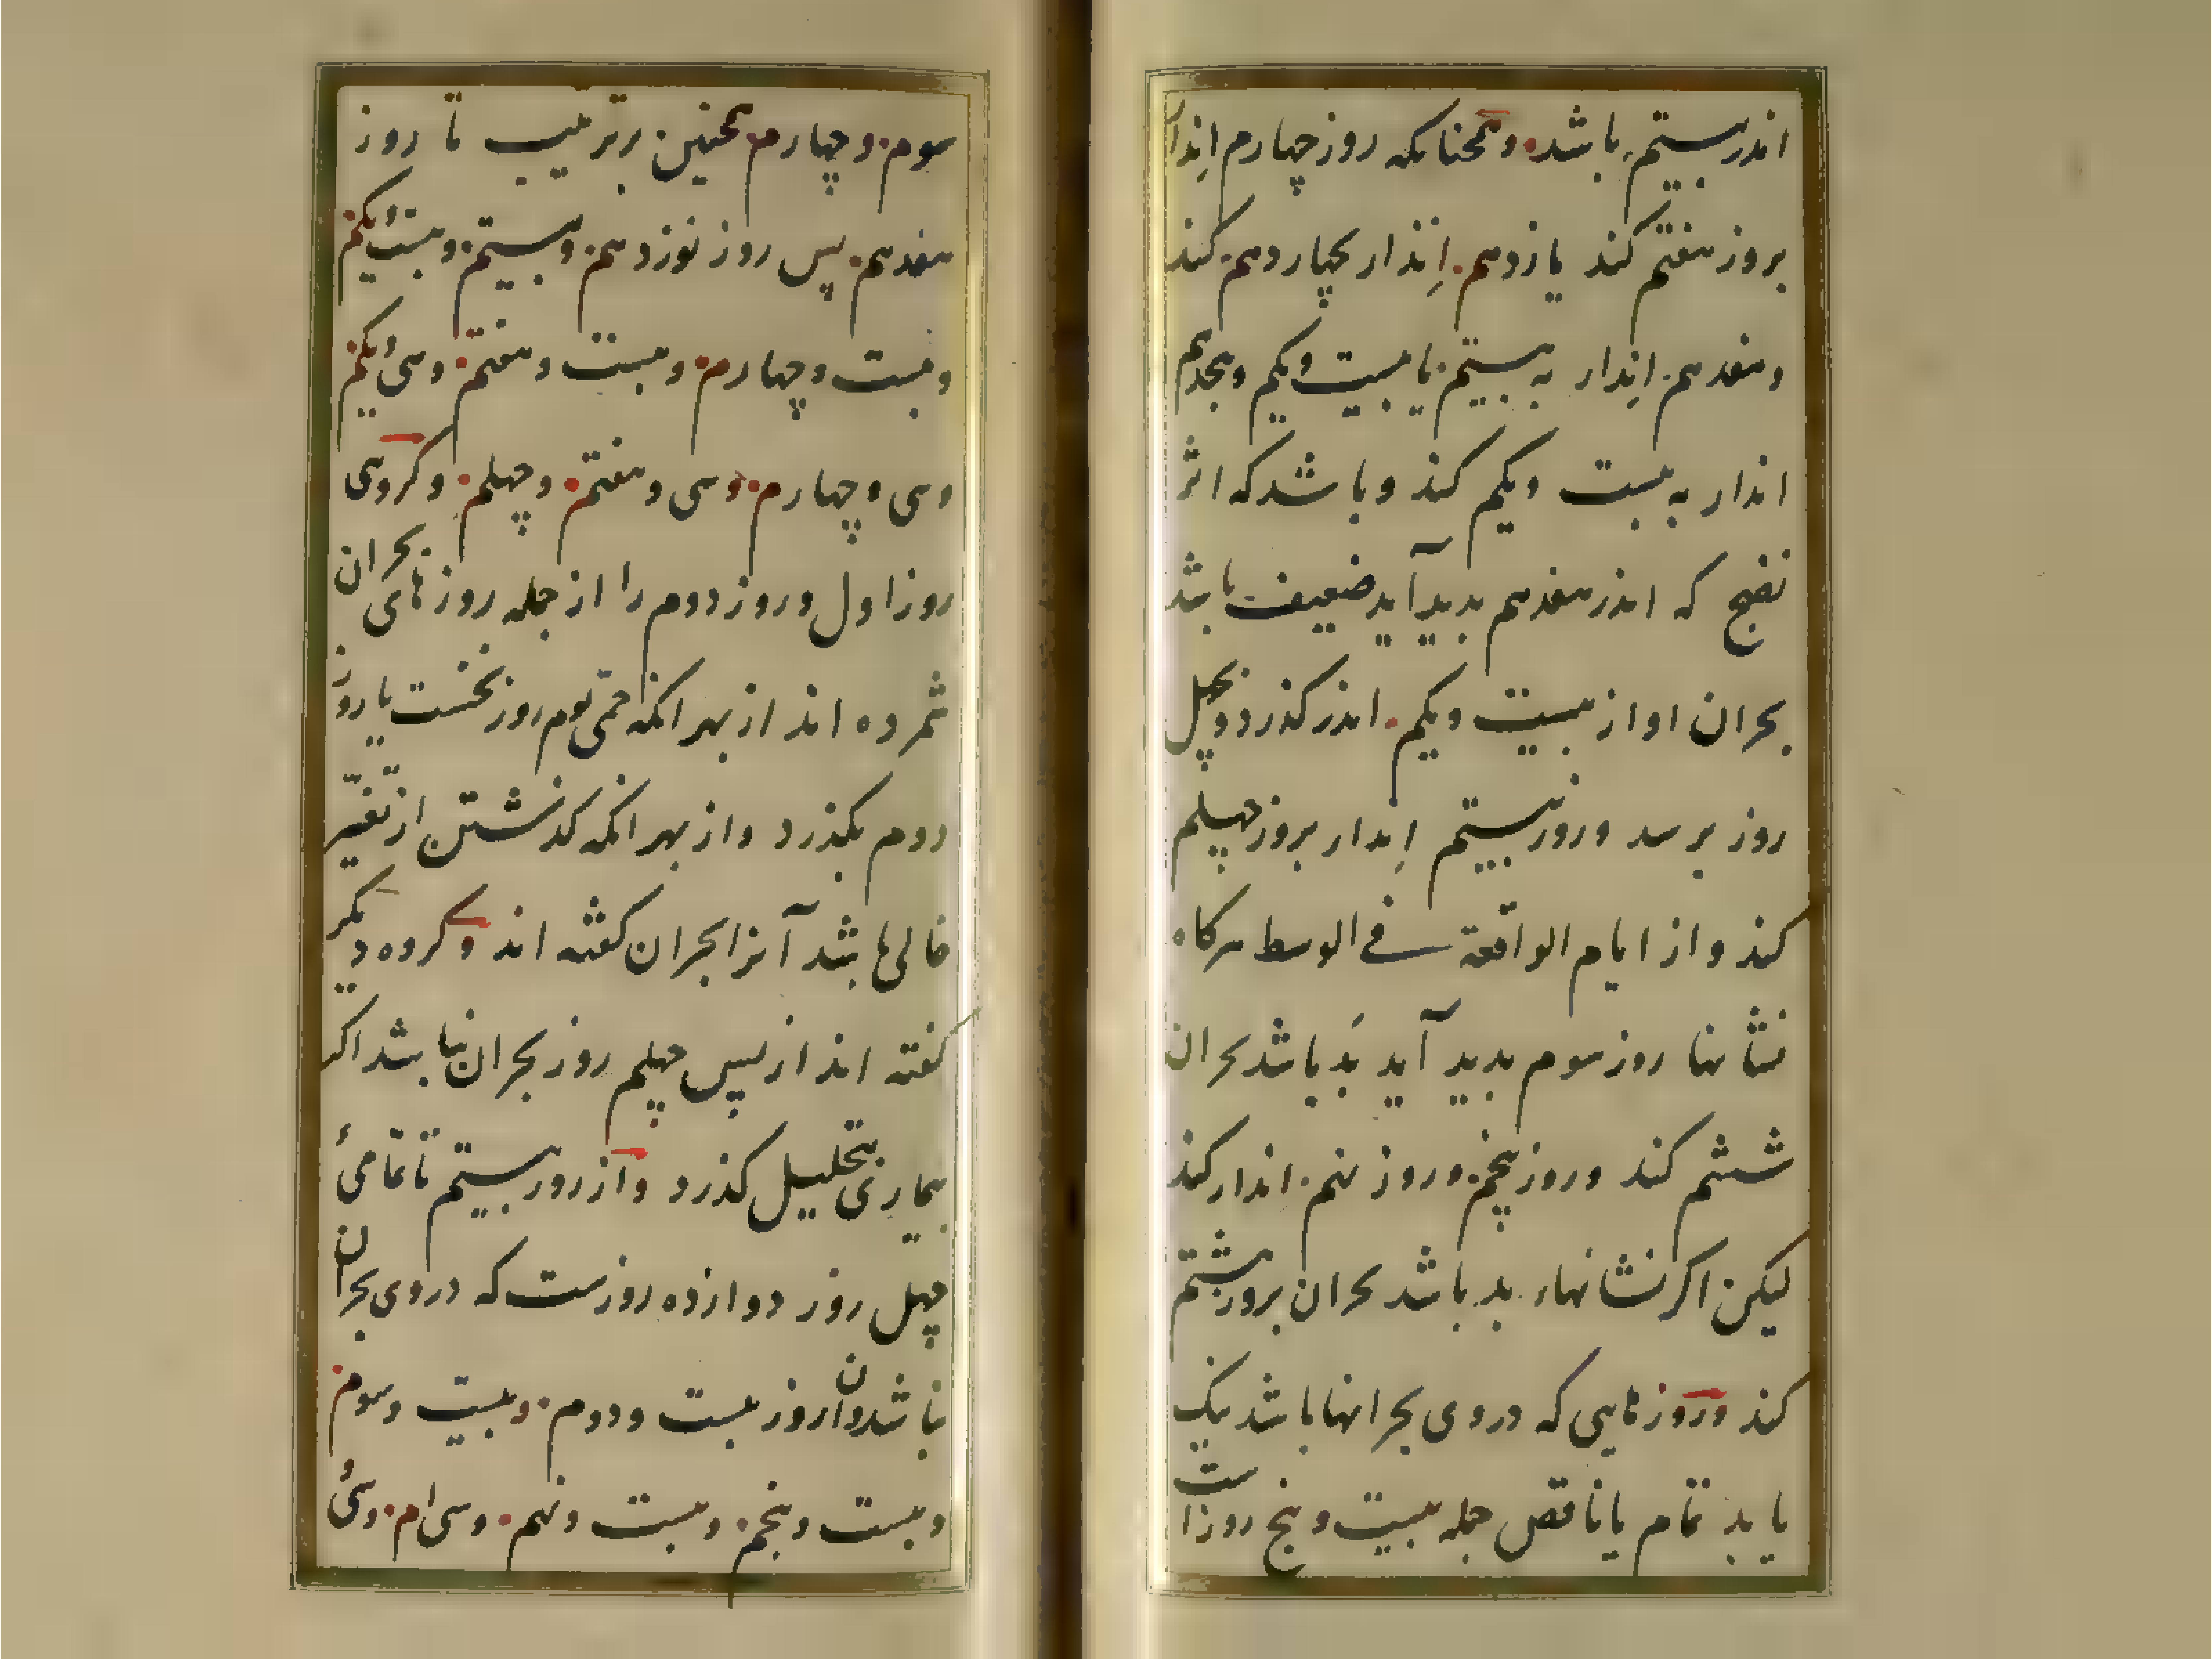 اندر بیستم باشد و همچنانکه روز چهارم اِنذار
بروز هفتم کند یازدهم اِنذار بچهاردهم کند
و هفدهم اِنذار به بیستم یا بیست و یکم و هجدهم
انذار به بیست و یکم کند و باشد که اثر
نضج که اندر هفدهم بدید آید ضعیف باشد
بحران او از بیست و یکم اندر کذرد و بچهل
روز برسد و روز بیستم اِنذار بروز چهلم
کند و از ایام الواقعة فی الوسط هرکاه
نشانها روز سوم بدید آید بَد باشد بحران
ششم کند و روز پنجم و روز نهم انذار کند
لیکن اکر نشانهاء بد باشد بحران بروز هشتم
کند و روزهایی که در وی بحرانها باشد نیک
یا بد تمام یا ناقص جمله بیست و پنج روز است
سوم و چهارم همچنین برترتیب تا روز
هفدهم پس روز نوزدهم و بیستم و بیست و یکم
و بیست و چهارم و بیست و هفتم و سی و یکم
و سی و چهارم و سی و هفتم و چهلم و کروهی
روز اول و روز دوم را از جمله روزهای بحران
شمرده اند از بهر انکه حمّی یوم روز نخست یا روز
دوم بکذرد و از بهر انکه کذشتن از تغیّر
خالی باشد آنرا بحران کفته اند و کروه دیکر
کفته اند از پس چهلم روز بحران نباشد اکر
بیماری بتحلیل کذرد و از روز بیستم تا تمامیٔ
چهل روز دوازده روزست که در وی بحران
نباشد وان روز بیست و دوم و بیست و سوم
و بیست و پنجم و بیست و نهم و سی ام و سی و